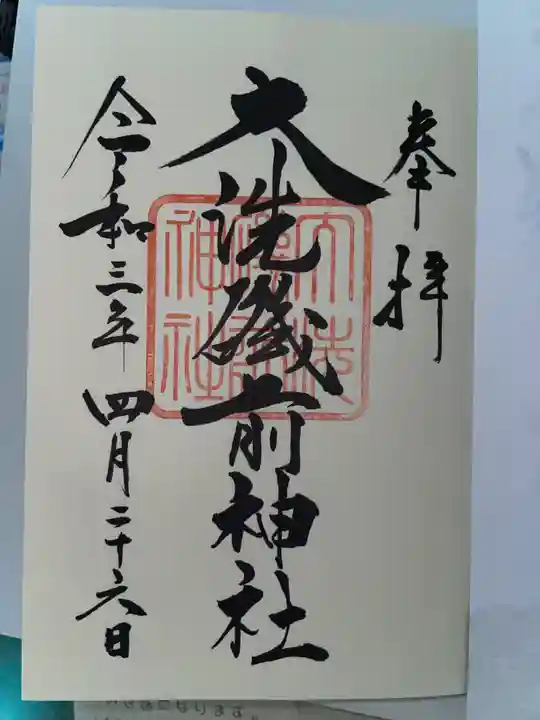 奉拝
大洗磯前神社
令和三年四月二十六日
大洗
磯前
神社
になります。